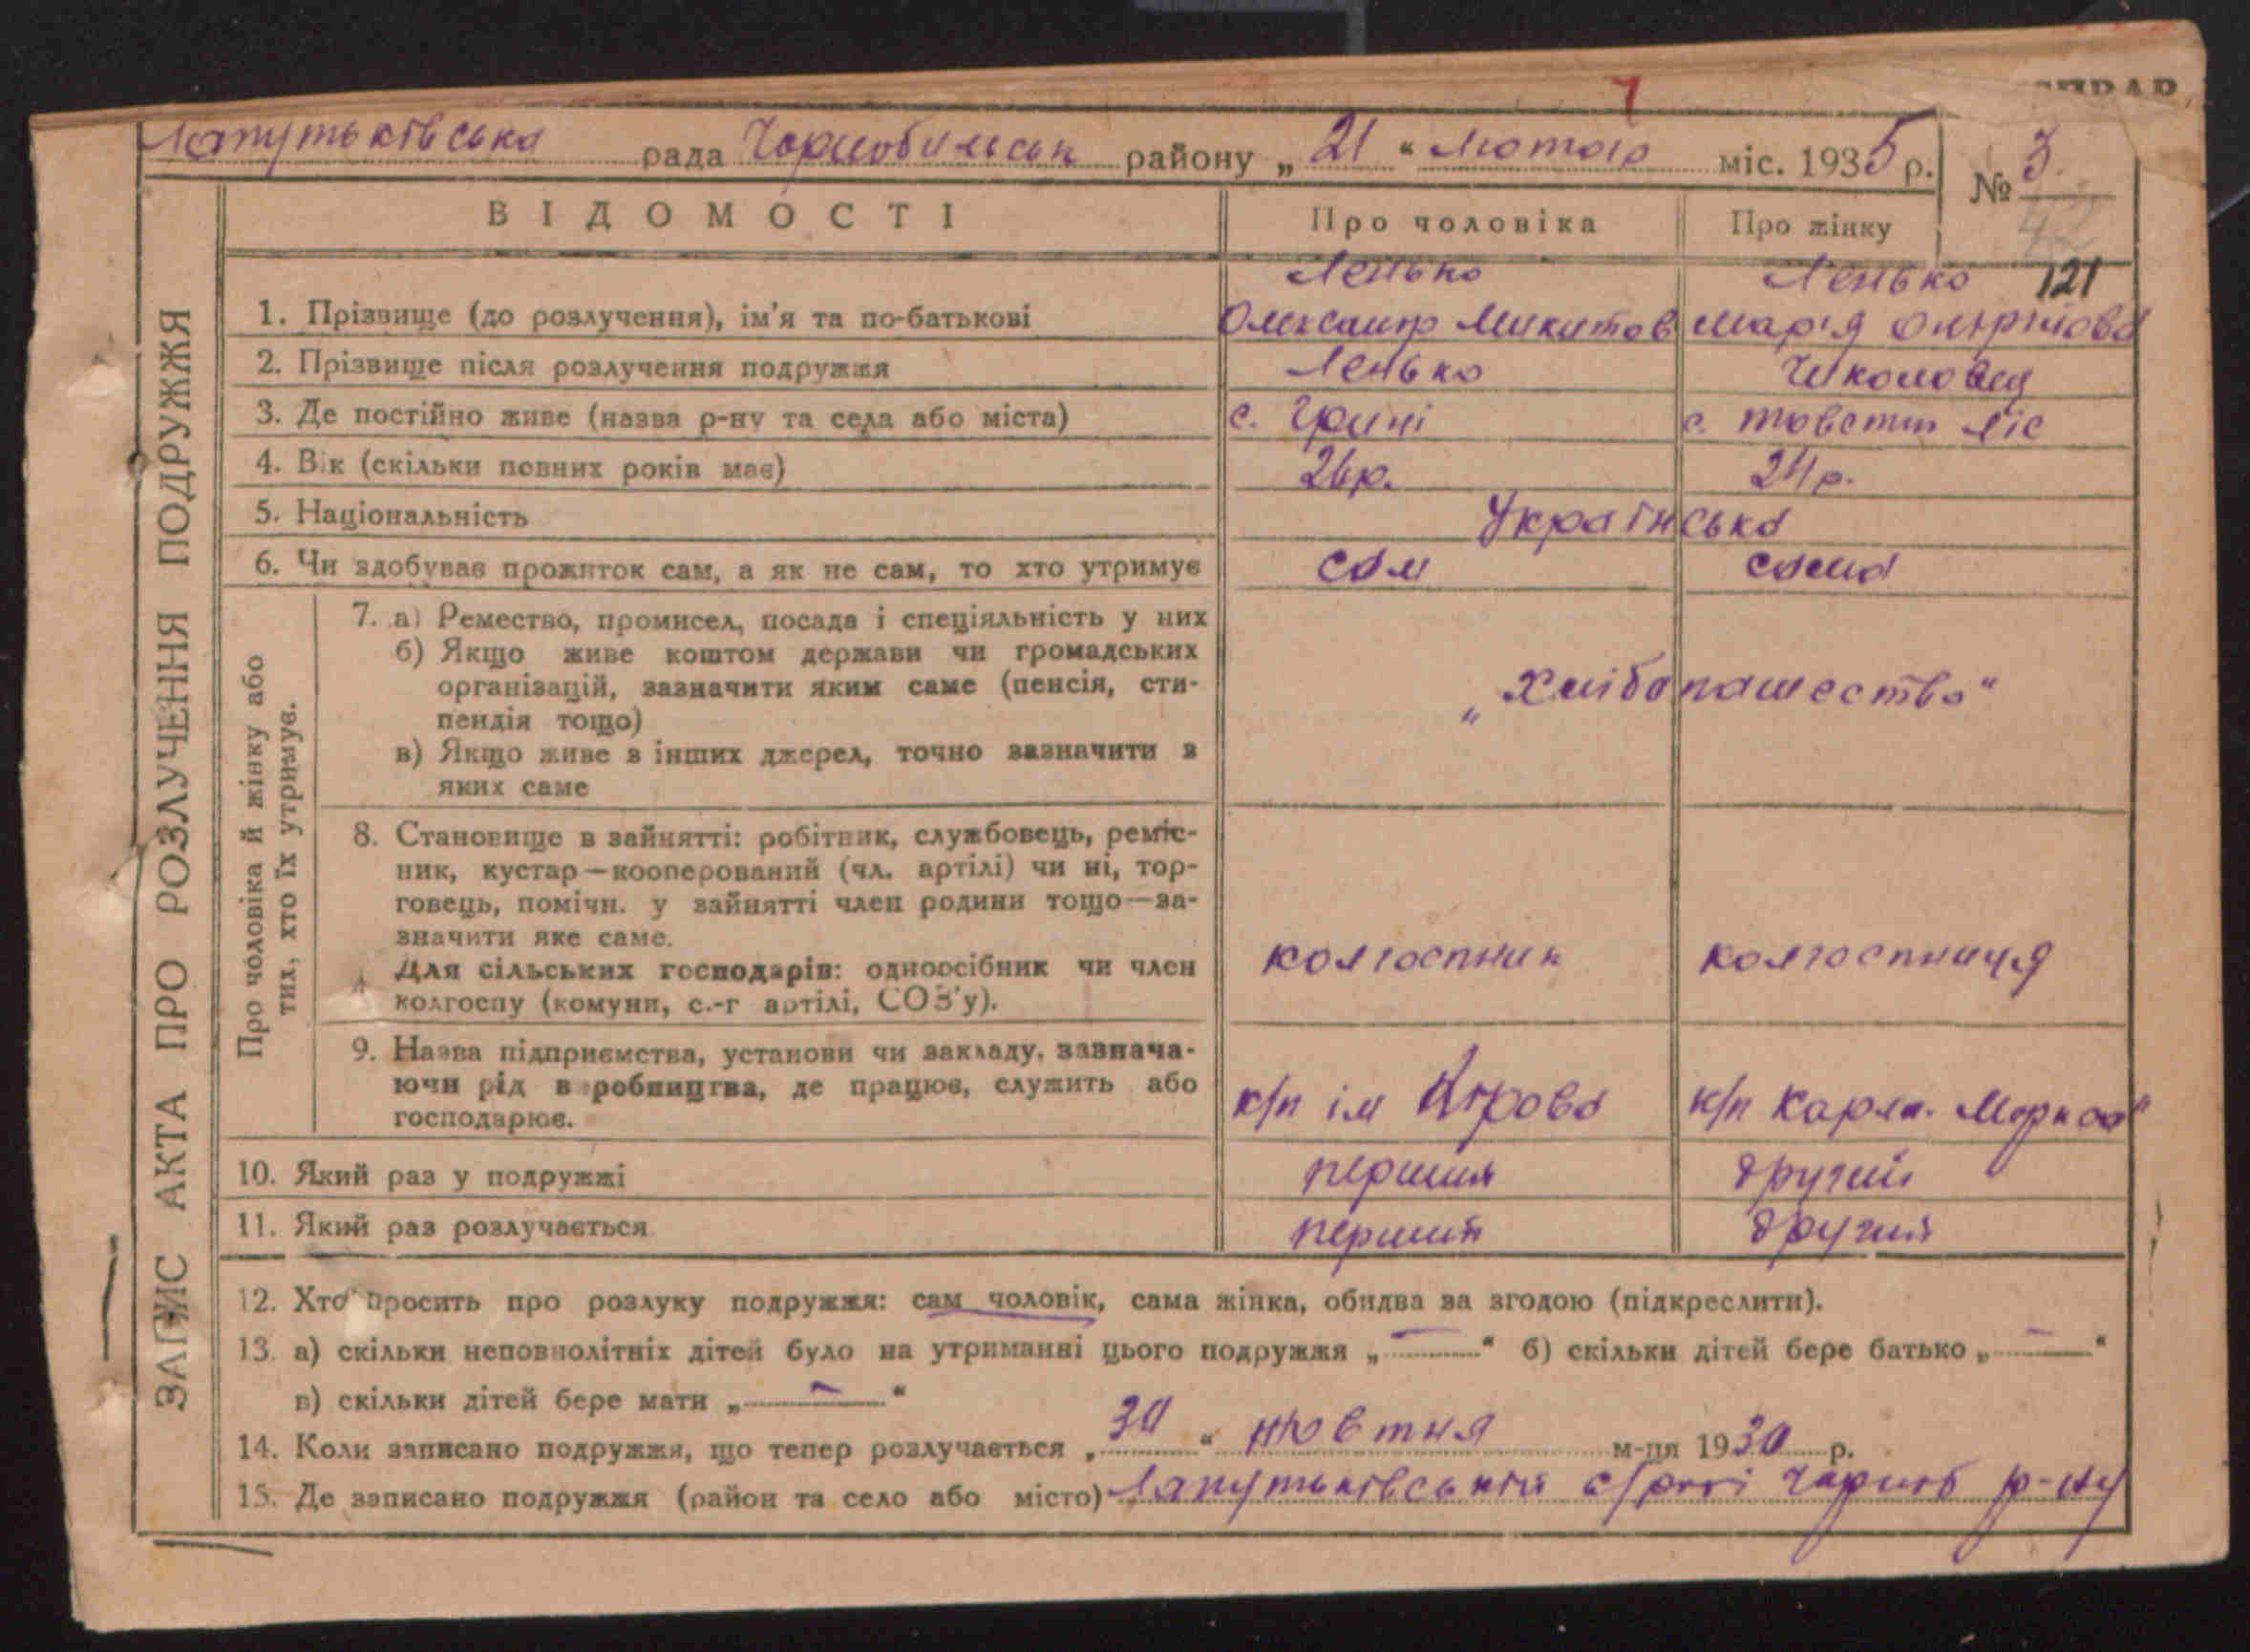 Лапутьківська рада Чорнобильськ району „21“ Лютого міс. 1935 р.
№ 3.
42
121
ВІДОМОСТІ Про чоловіка Про жінку
Ленько Ленько
1. Прізвище (до розлучення), ім'я та по-батькові Олександр Микитов Марія
2. Прізвище після розлучення подружжя Ленько
3. Де постійно живе (назва р-ну та села або міста) с. с. товстий ліс
4. Вік (скільки повних років має) 26р. 24р.
5. Національність Українська
6. Чи здобував прожиток сам, а як не сам, то хто утримує сам сама
ЗАПИС АКТА ПРО РОЗЛУЧЕННЯ ПОДРУЖЖЯ
Про чоловіка й жінку або
тих, хто їх утримує.
7. а) Ремество, промисел, посада і спеціяльність у них
б) Якщо живе коштом держави чи громадських
організацій, зазначити яким саме (пенсія, сти-
пендія тощо)
„Хлібопашество“
в) Якщо живе з інших джерел, точно зазначити з
яких саме
8. Становище в зайнятті: робітник, службовець, реміс-
ник, кустар—кооперований (чл. артілі) чи ні, тор-
говець, помічн. у зайнятті член родини тощо—за-
значити яке саме.
Для сільських господарів: одноосібник чи член колгоспник колгоспниця
колгоспу (комуни, с.-г артілі, СОЗ'у).
9. Назва підприємства, установи чи закладу, зазнача-
ючи рід виробництва, де працює, служить або к/п ім Кірова к/п Карла Маркса“
господарює.
10. Який раз у подружжі перший другий
11. Який раз розлучається перший другий
12. Хто просить про розлуку подружжя: сам чоловік, сама жінка, обидва за згодою (підкреслити).
13. а) скільки неповнолітніх дітей було на утриманні цього подружжя „—“ б) скільки дітей бере батько „—“
в) скільки дітей бере мати „—“
14. Коли записано подружжя, що тепер розлучається „30“ жовтня м-ця 1930 р.
15. Де записано подружжя (район та село або місто) Лапутьківській с/раді Чорноб р-ну